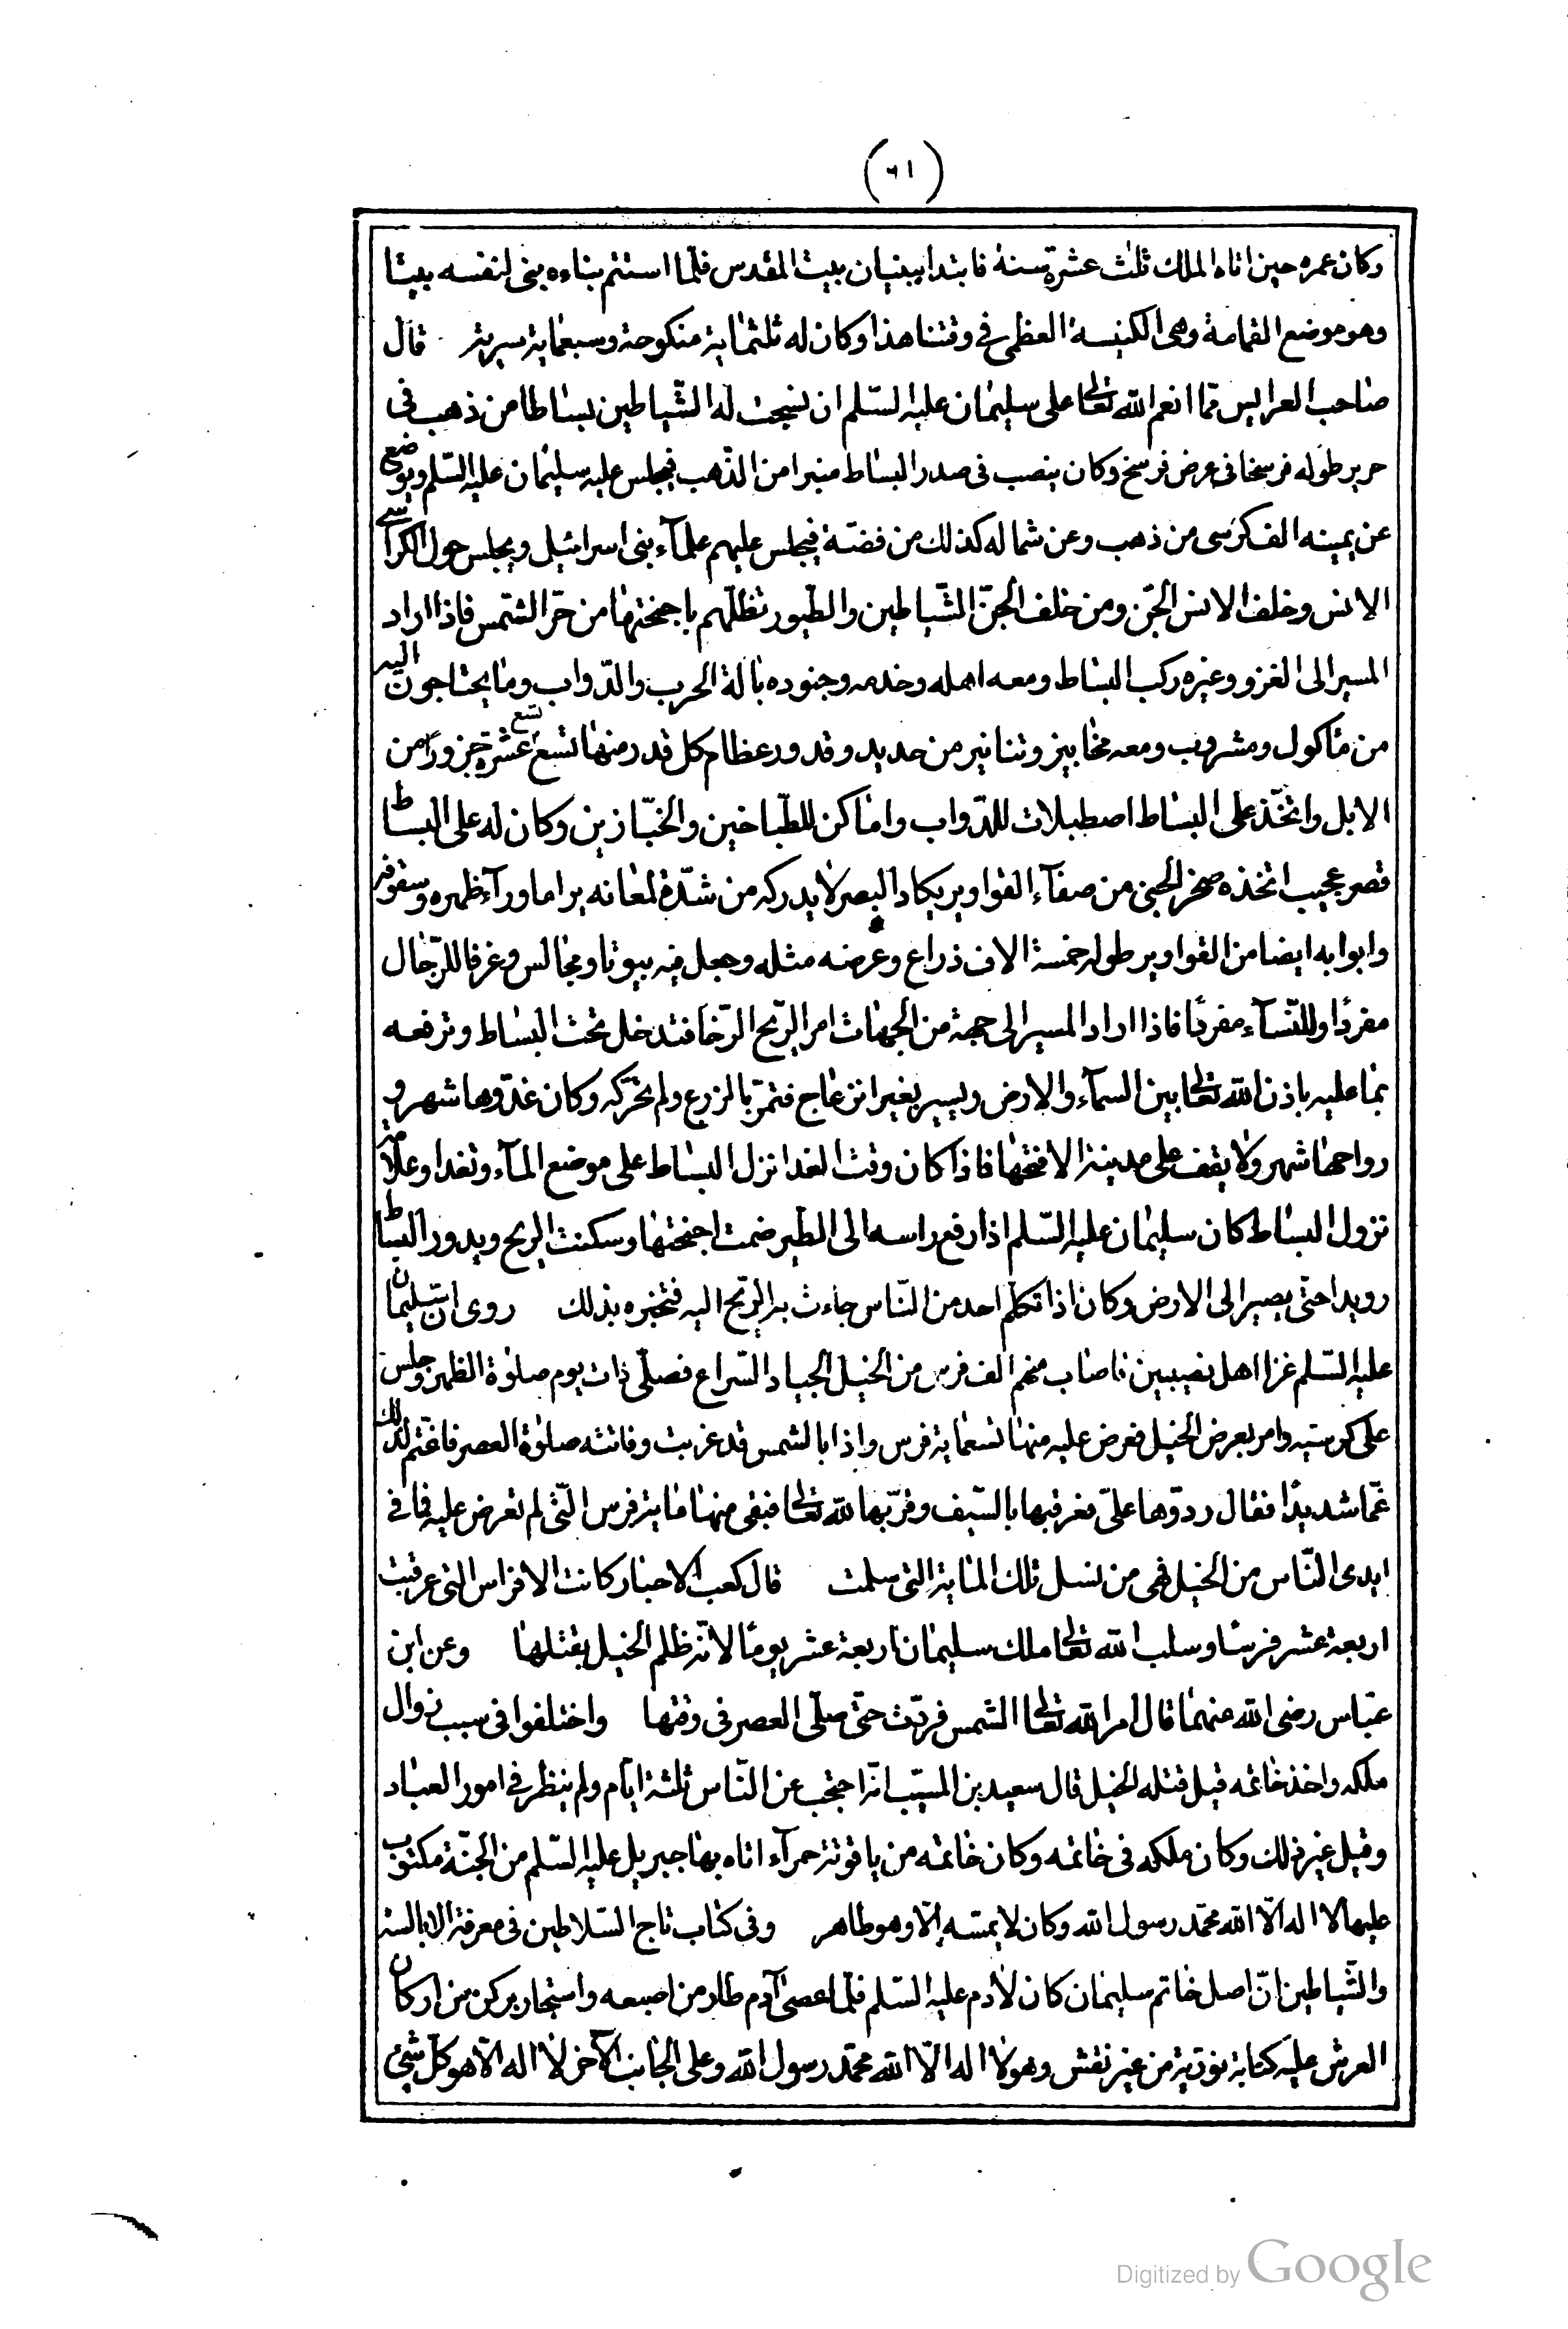 (٦١)
وكان عمره حين اتاه الملك ثلث عشرة سنة فابتدا ببنيان بيت المقدس فلمّا استتم بناءه بنى لنفسه بيتا
وهو موضع القمامة وهى الكنيسة العظمى فى وقتنا هذا وكان له ثلثماية منكوحة وسبعماية سرية قال
صاحب العرايس ممّا انعم الله تعالى على سليمان عليه السّلم ان نسجت له الشّياطين بساطا من ذهب فى
حرير طوله فرسخا فى عرض فرسخ وكان ينصب فى صدر البساط منبرا من الذّهب فيجلس عليه سليمان عليه السّلم ويوضع
عن يمينه الف كرسى من ذهب وعن شماله كذلك من فضّة فيجلس عليهم علمآء بنى اسرائيل ويجلس حول الكراسى
الانس وخلف الانس الجنّ ومن خلف الجنّ الشّياطين والطّيور تظلّهم باجنحتها من حرّ الشّمس فاذا اراد
المسير الى الغزو وغيره ركب البساط ومعه اهله وخدمه وجنوده بالة الحرب والدّواب وما يحتاجون اليه
من ماكول ومشروب ومعه مخابيز وتنانير من حديد وقدور عظام كل قدر منها تسع تسع عشرة جزورًا من
الابل واتّخذ على البساط اصطبلات للدّواب واماكن للطّباخين والخبّازين وكان له على البساط
قصر عجيب اتخذه صخر الجنى من صفآء القوارير يكاد البصر لا يدركه من شدّة لمعانه يرا ما ورآء ظهره وسقوفه
وابوابه ايضا من القوارير طوله خمسة الاف ذراع وعرضه مثله وجعل فيه بيوتا ومجالس وغرفا للرّجال
مفردًا وللنّسآء مفردًا فاذا اراد المسير الى جهة من الجهات امر الرّيح الرّخا فتدخل تحت البساط وترفعه
بما عليه باذن الله تعالى بين السمآء والارض ويسير بغير انزعاج فتمرّ بالزرع ولم تحرّكه وكان غدوّها شهر و
رواحها شهر ولا يقف على مدينة الا فتحها فاذا كان وقت الغدا نزل البساط على موضع المآء وتغدا وعلامة
نزول البساط كان سليمان عليه السّلم اذا رفع راسه الى الطّير ضمت اجنحتها وسكنت الريح ويدور البساط
رويدا حتى يصير الى الارض وكان اذا تكلّم احد من النّاس جاءت به الرّيح اليه فتخبره بذلك روى انّ سليمان
عليه السّلم غزا اهل نصيبين فاصاب منهم الف فرس من الخيل الجياد السّراع فصلّى ذات يوم صلوة الظهر وجلس
على كرسيّه وامر بعرض الخيل فعرض عليه منها تسعماية فرس واذا بالشمس قد غربت وفاتته صلوة العصر فاغتم لذلك
غمّا شديدًا فقال ردوّها علىّ فعرقبها بالسّيف وقرّبها لله تعالى فبقى منها ماية فرس الّتى لم تعرض عليه فما فى
ايدى النّاس من الخيل فهى من نسل تلك الماية التى سلمت قال كعب الاحبار كانت الافراس التى عرقبت
اربعة عشر فرسًا وسلب الله تعالى ملك سليمان اربعة عشر يومًا لانّه ظلم الخيل بقتلها وعن ابن
عبّاس رضى الله عنهما قال امر الله تعالى الشمس فردّت حتى صلّى العصر فى وقتها واختلفوا فى سبب زوال
ملكه واخذ خاتمه قيل قتله الخيل قال سعيد بن المسيّب انّه احتجب عن النّاس ثلثة ايّام ولم ينظر فى امور العباد
وقيل غير ذلك وكان ملكه فى خاتمه وكان خاتمه من ياقوتة حمرآء اتاه بها جبريل عليه السّلم من الجنّة مكتوب
عليها لا اله الّا الله محمّد رسول الله وكان لا يمسّه الّا وهو طاهر وفى كتاب تاج السّلاطين فى معرفة الابالسة
والشّياطين انّ اصل خاتم سليمان كان لآدم عليه السّلم فلمّا عصى آدم طار من اصبعه واستجار بركن من اركان
العرش عليه كتابة نوريّة من غير نقش وهو لا اله الّا الله محمّد رسول الله وعلى الجانب الآخر لا اله الّا هو كلّ شئ
Digitized by Google